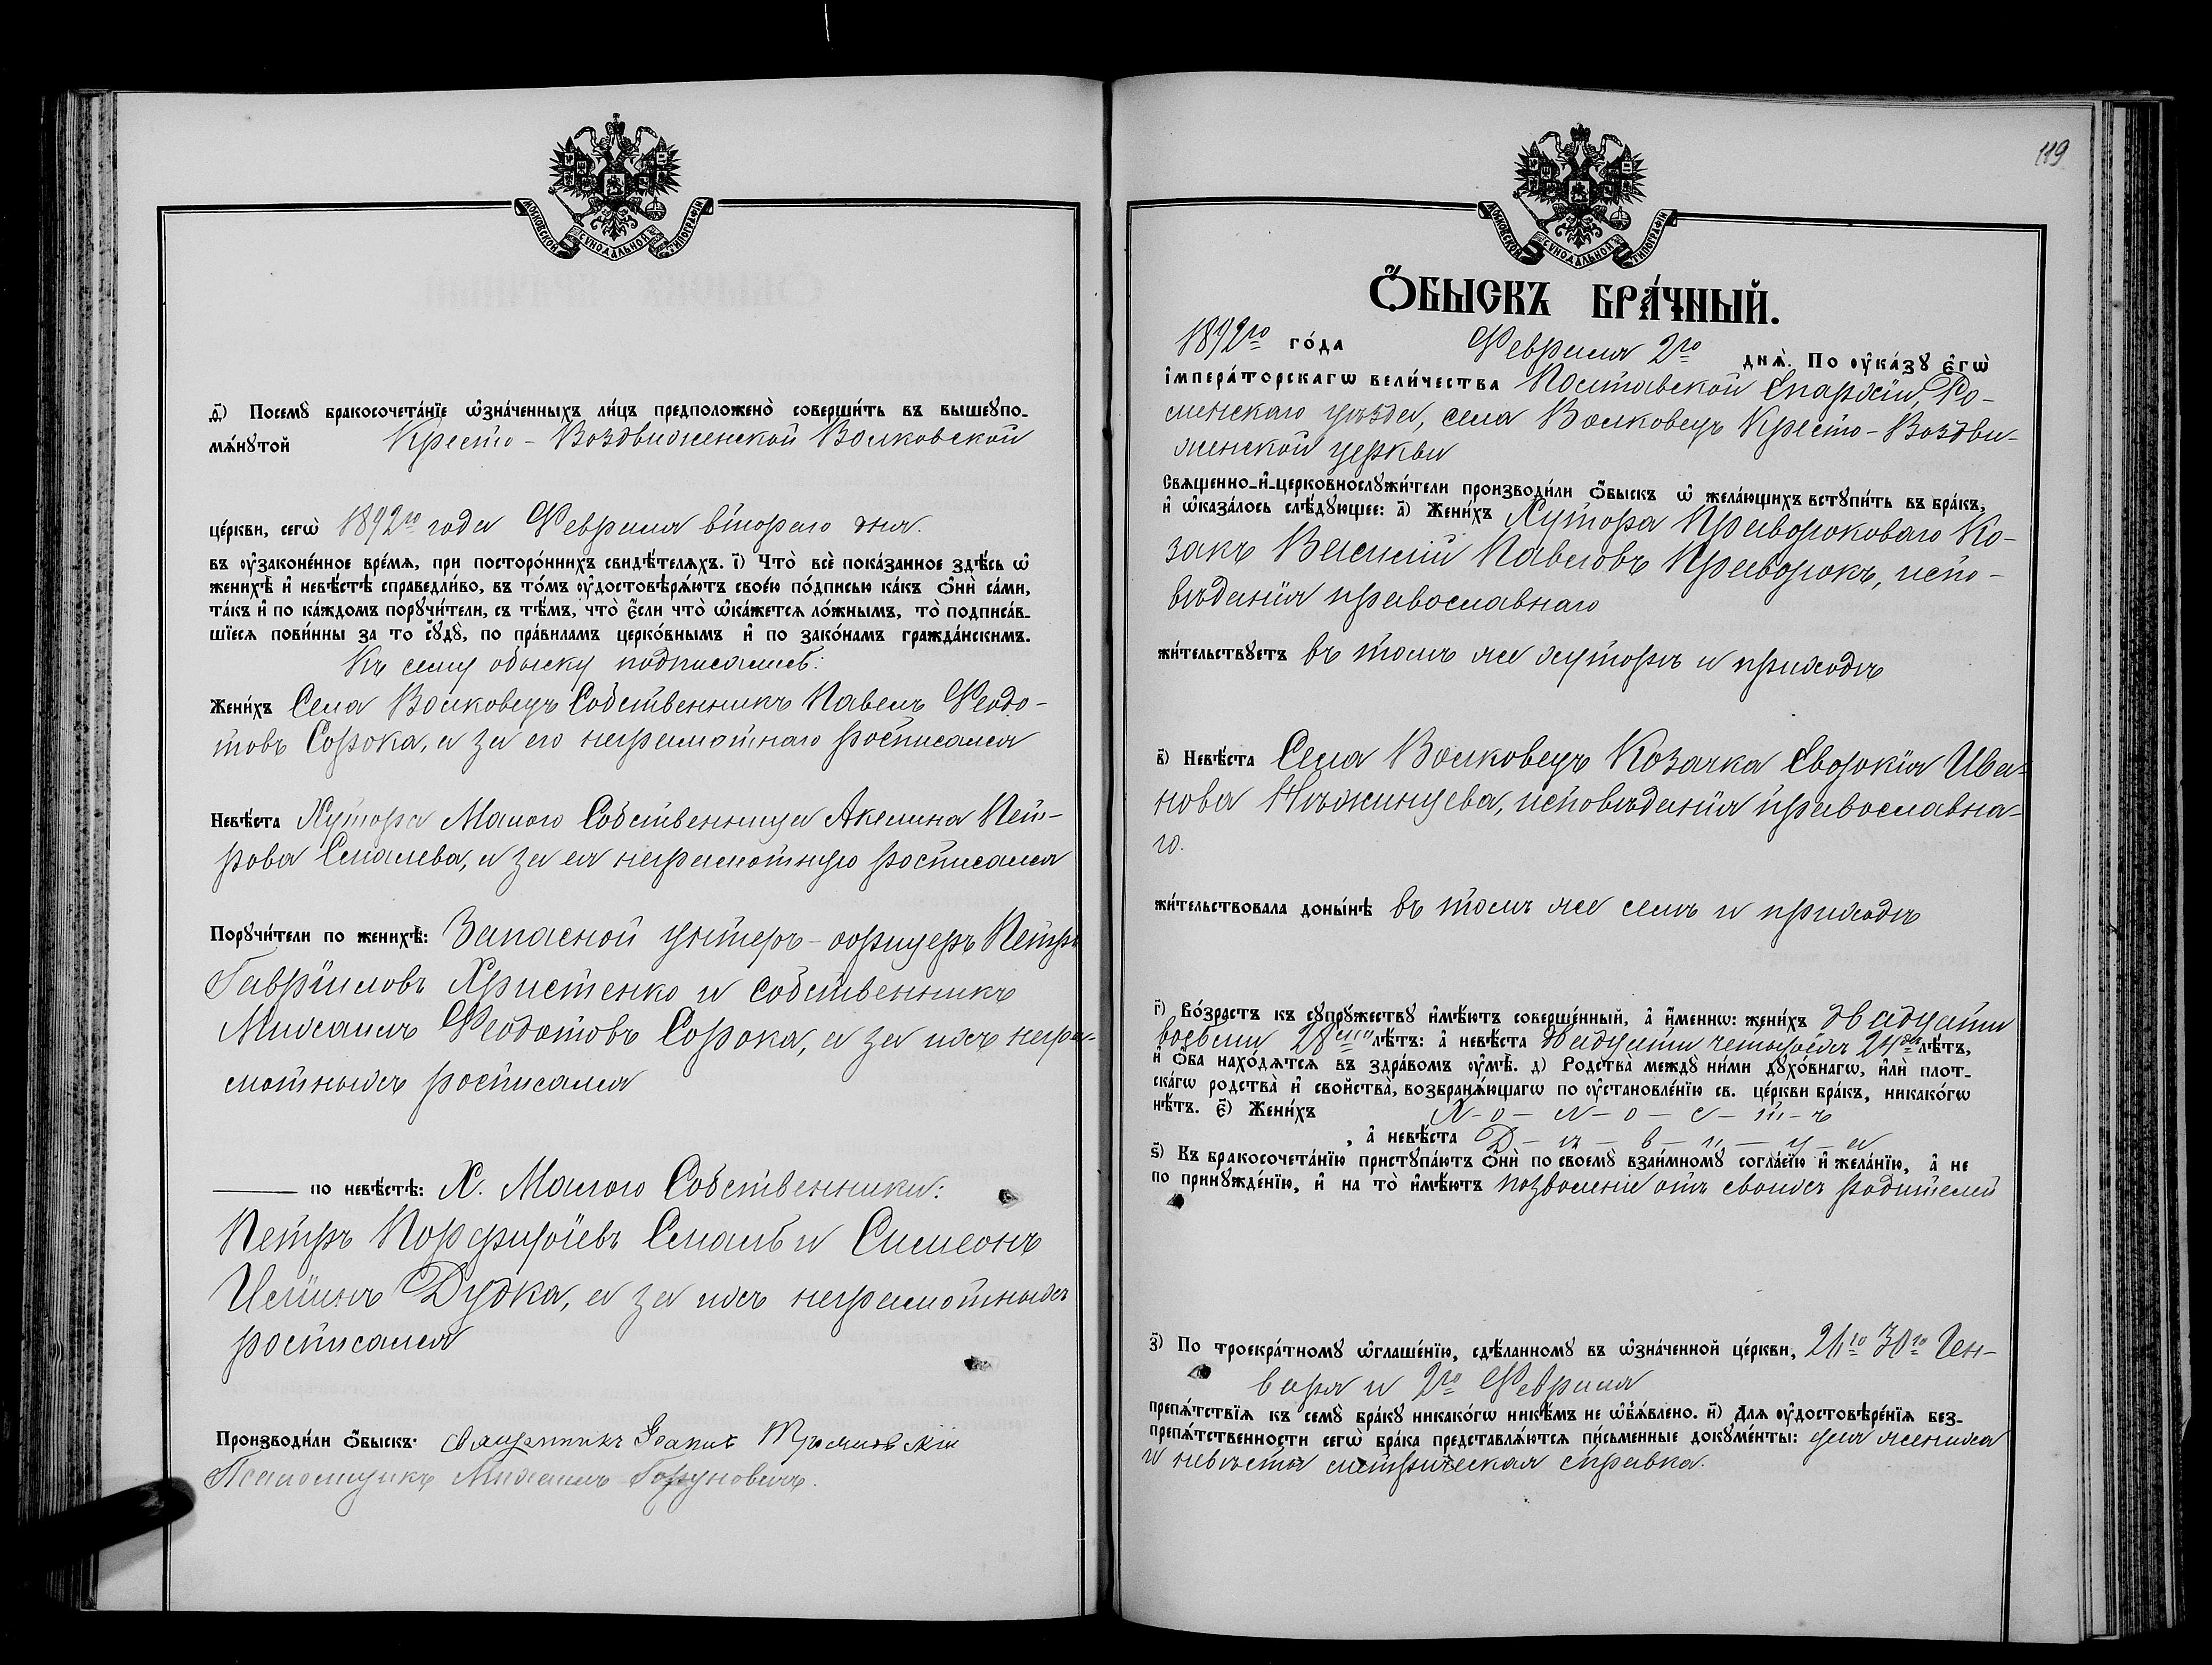 МОСКОВСКОЙ СУНОДАЛЬНОЙ ТИПОГРАФІИ
д҃) Посемꙋ̀ бракосочета́нїе ѡ҆зна́ченныхъ ли́цъ предположено̀ соверши́ть въ вышеꙋпо-
мѧ́нꙋтой Кресто-Воздвиженской Волковской
це́ркви, сегѡ̀ 1892го года Февраля второго дня.
въ ᲂу҆законе́нное вре́мѧ, при посторо́ннихъ свидѣ́телѧхъ. і҃) Что̀ всѐ пока́занное здѣ́сь ѡ҆
женихѣ̀ и҆ невѣ́стѣ справедли́во, въ то́мъ ᲂу҆достовѣрѧ́ютъ свое́ю по́дписью ка́къ ѻ҆нѝ са́ми,
та́къ и҆ по ка́ждомъ порꙋчи́тели, съ тѣ́мъ, что̀ є҆́сли что̀ ѡ҆ка́жетсѧ ло́жнымъ, то̀ подписа́в-
шїесѧ пови́нны за то сꙋдꙋ̀, по пра́виламъ церко́внымъ и҆ по зако́намъ гражда́нскимъ.
Къ сему обыску подписались:
Жени́хъ Села Волковецъ Собственникъ Павелъ Феодо-
товъ Сорока, а за его неграмотнаго росписался
Невѣ́ста Хутора Малого Собственница Акелина Пет-
рова Смалева, а за ея неграмотную росписался
Порꙋчи́тели по женихѣ̀: Запасной унтеръ-офицеръ Петръ
Гавріиловъ Христенко и собственникъ
Михаилъ Феодотовъ Сорока, а за ихъ негра-
мотныхъ росписался
по невѣ́стѣ: Х. Малого Собственники:
Петръ Порфиріевъ Смаль и Симеонъ
Исаіинъ Дудка, а за ихъ неграмотныхъ
росписался
Производи́ли ѻ҆́быскъ: Священникъ Іоаннъ
Псаломщикъ Михаилъ
119
МОСКОВСКОЙ СУНОДАЛЬНОЙ ТИПОГРАФІИ
Ѻ҆́БЫСКЪ БРА́ЧНЫЙ.
1892го го́да Февраля 2го днѧ̀. По ᲂу҆ка́зꙋ є҆гѡ̀
і҆мпера́торскагѡ вели́чества Полтавской Епархіи, Ро-
менскаго уѣзда, села Волковецъ Кресто-Воздви-
женской церкви
Свѧщенно-и҆-церковнослꙋжи́тели производи́ли ѻ҆́быскъ ѡ҆ жела́ющихъ встꙋпи́ть въ бра́къ,
и҆ ѡ҆каза́лось слѣ́дꙋющее: а҃) Жени́хъ Хутора Криворокового Ко-
закъ Василій Павловъ Криворокъ, испо-
вѣданія православнаго
жи́тельствꙋетъ въ томъ же хуторѣ и приходѣ
в҃) Невѣ́ста Села Волковецъ Козачка Евдокія Ива-
нова Нѣжинцева, исповѣданія православна-
го.
жи́тельствовала доны́нѣ въ томъ же селѣ и приходѣ
г҃) Во́зрастъ къ сꙋпрꙋжествꙋ и҆мѣ́ютъ соверше́нный, а҆ и҆́меннѡ: жени́хъ двадцати
восьми 28ми лѣ́тъ: а҆ невѣ́ста двадцати четырехъ 24хъ лѣ́тъ,
и҆ ѻ҆́ба нахо́дѧтсѧ въ здра́вомъ ᲂу҆мѣ̀. д) Родства̀ междꙋ ни́ми дꙋхо́внагѡ, и҆лѝ плот-
ска́гѡ родства̀ и҆ свойства̀, возбранѧ́ющагѡ по ᲂу҆становле́нїю св. це́ркви бра́къ, никако́гѡ
нѣ́тъ. є҃) Жени́хъ Х-о-л-о-с-т-ъ
, а҆ невѣ́ста Д-ѣ-в-и-ц-а
ѕ҃) Къ бракосочета́нїю пристꙋпа́ютъ ѻ҆нѝ по своемꙋ̀ взаи́мномꙋ согла́сїю и҆ жела́нїю, а҆ не
по принꙋжде́нїю, и҆ на то̀ и҆мѣ́ютъ позволеніе отъ своихъ родителей
з҃) По троекра́тномꙋ ѡ҆глаше́нїю, сдѣ́ланномꙋ въ ѡ҆зна́ченной це́ркви, 26го 30го Ген-
варя и 2го Февраля
препѧ́тствїѧ къ семꙋ̀ бра́кꙋ никако́гѡ никѣ́мъ не ѡ҆б̾ѧ́влено. и҃) Длѧ ᲂу҆достовѣре́нїѧ без-
препѧ́тственности сегѡ̀ бра́ка представлѧ́ютсѧ пи́сьменные докꙋме́нты: для жениха
и невѣсты метрическая справка.